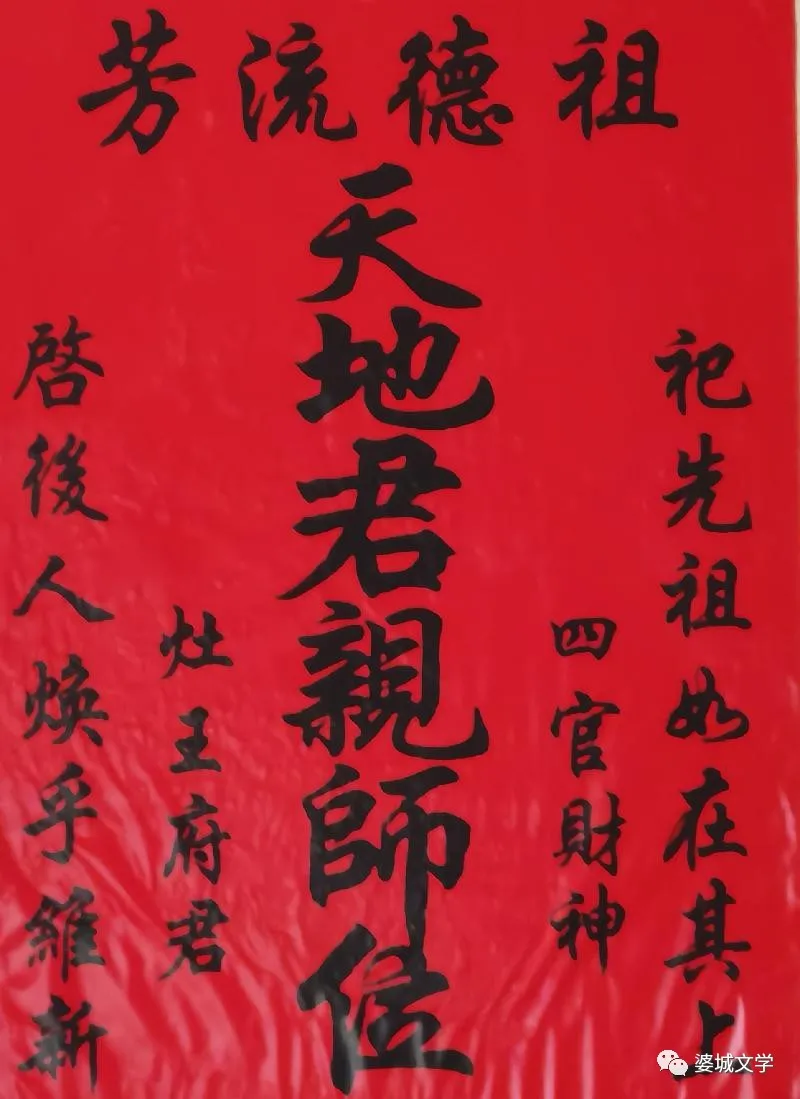 祖德流芳
祀先祖如在其上
四官財神
天地君親師位
灶王府君
啓後人焕乎維新
婆城文学